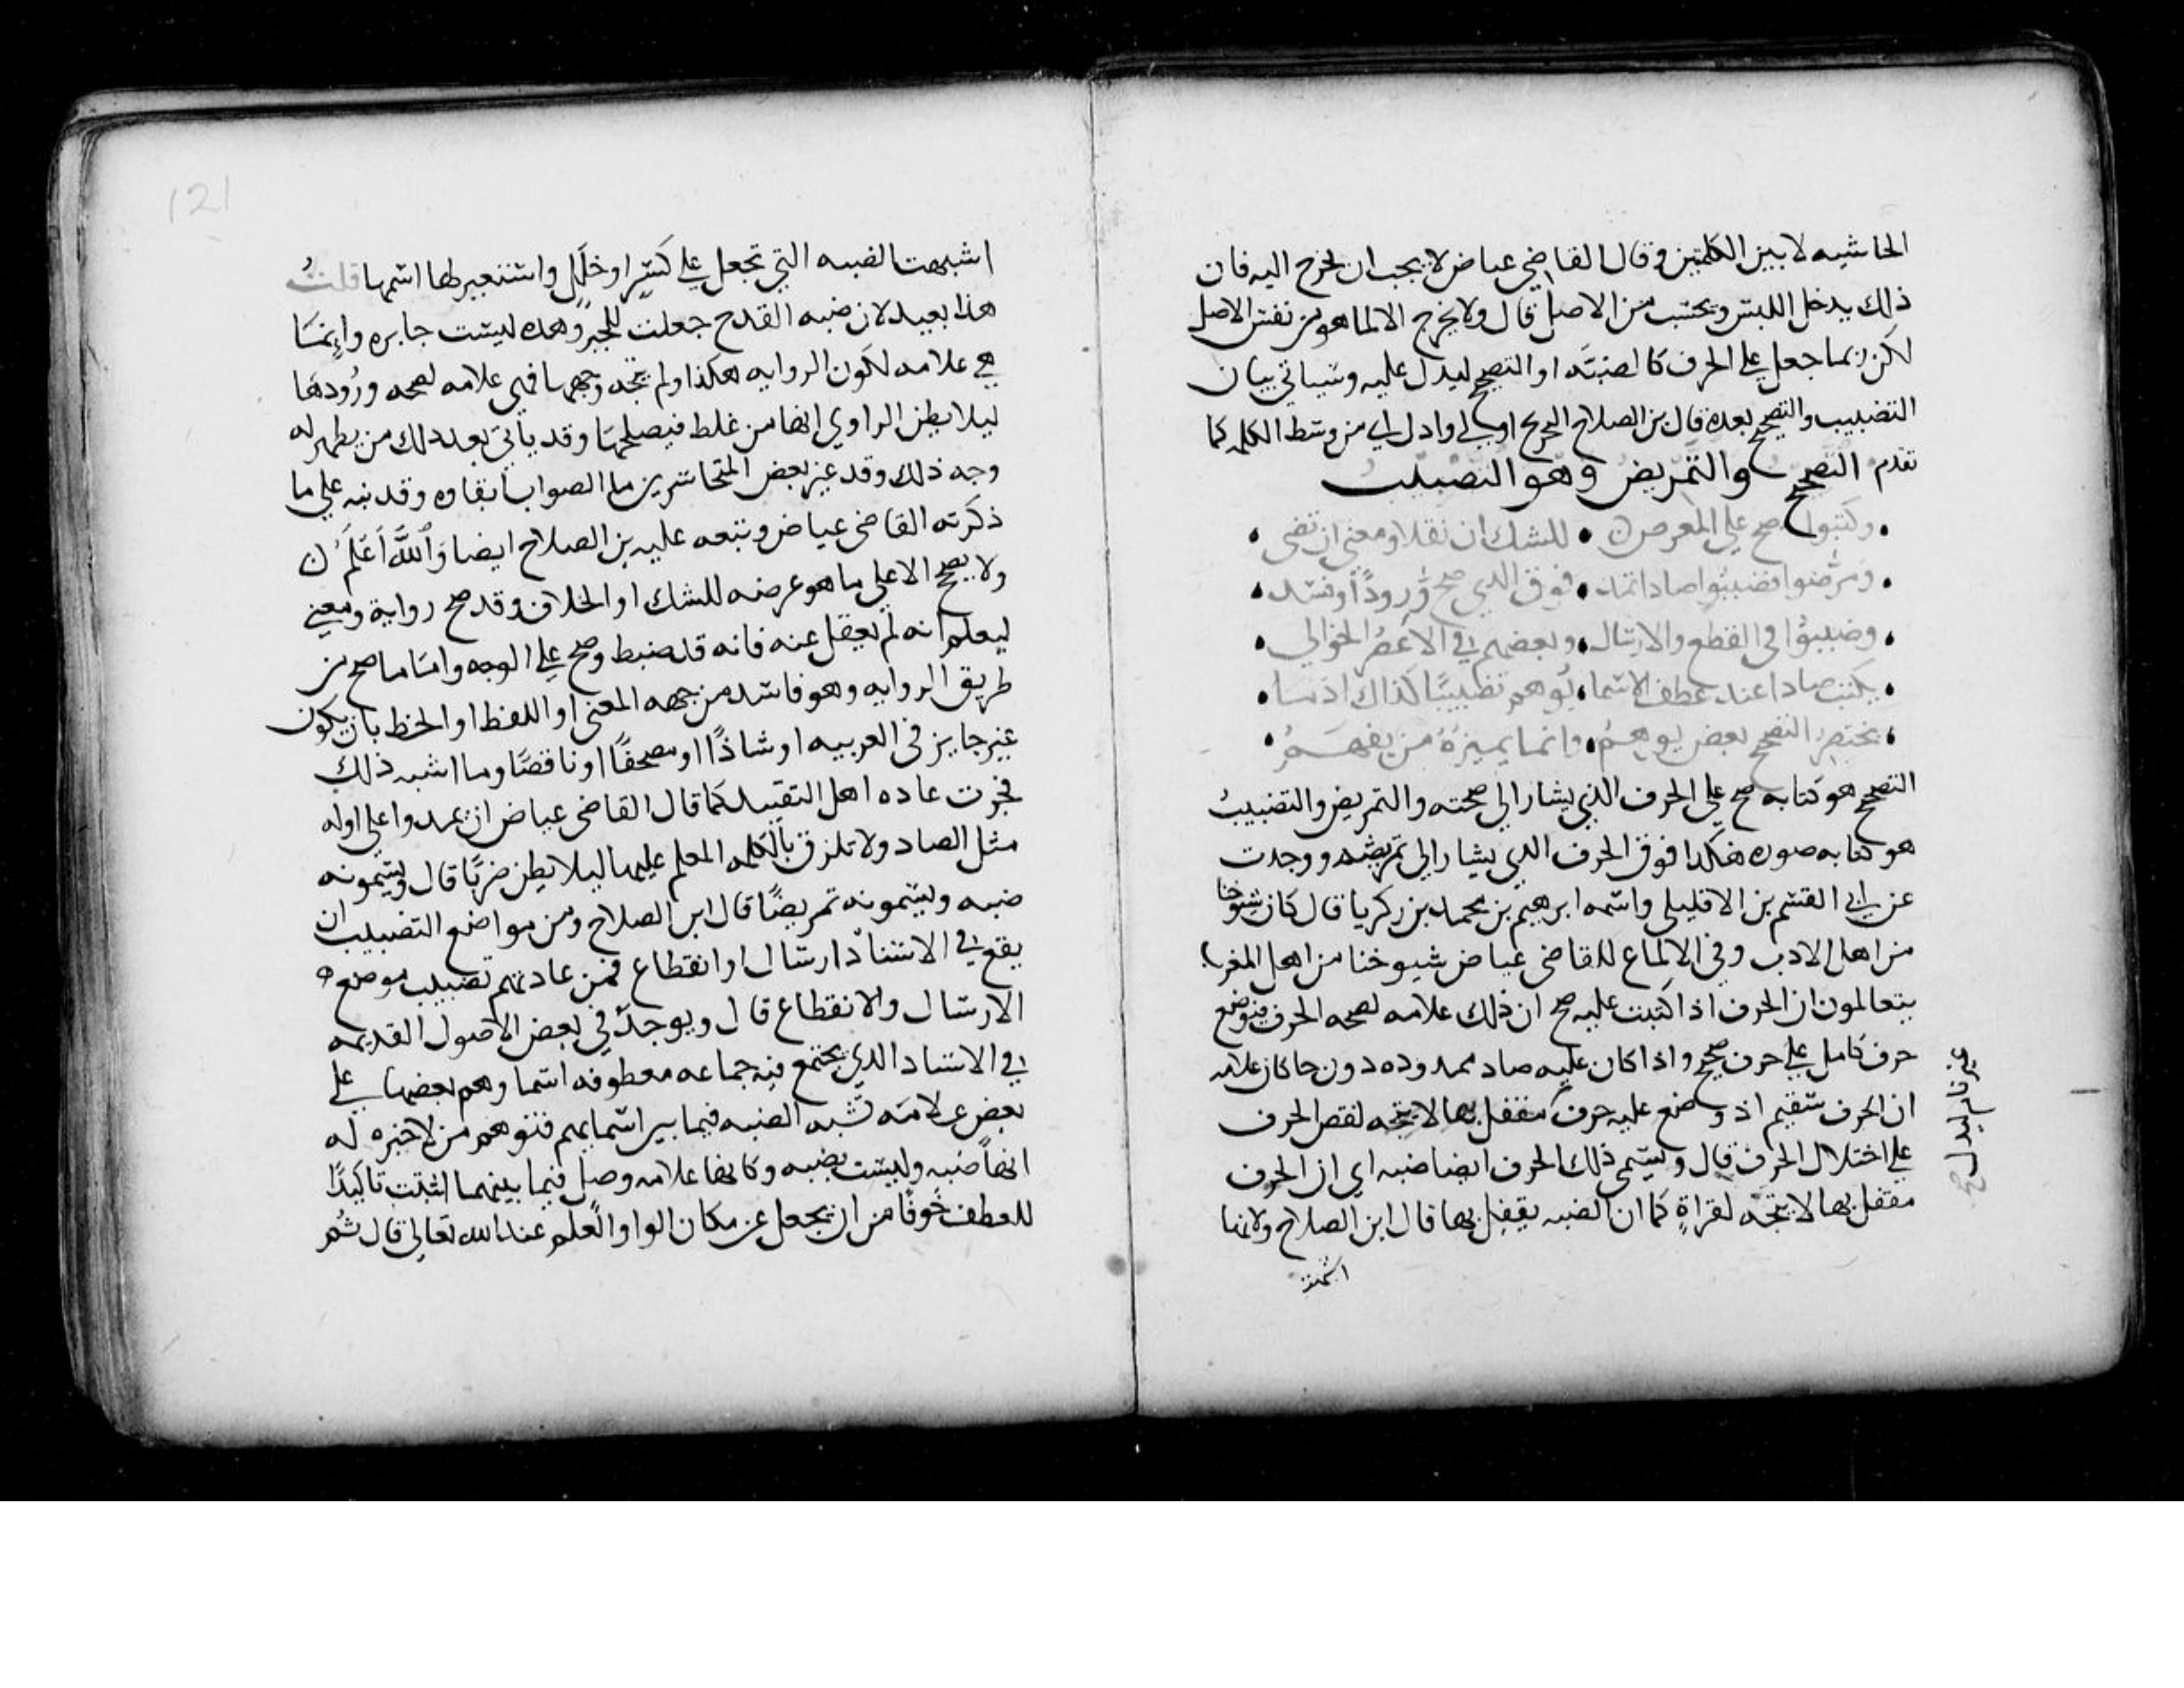 الحاشيه لا بين الكلمتين وقال القاضي عياض لا يجب ان يخرج اليه فان
ذلك يدخل اللبس ويحسب من الاصل قال ولا يخرج الا لما هو من نفس الاصل
لكن ربما جعل علي الحرف كالضبه او التصحيح ليدل عليه وسياتي بيان
التضبيب والتصحيح بعده قال بن الصلاح التخريج اولي وادل اي من وسط الكلمه كما
تقدم التصحيح والتمريض وهو التضبيب
وكتبوا صح علي المعرض • للشك ان نقلا ومعني ارتضي
ومرضوا فضببوا صادا تمد • فوق الذي صح ورودا وفسد
وضببوا في القطع والارسال • وبعضهم في الاعصر الخوالي
يكتب صادا عند عطف الاسما • يوهم تضبيبا كذاك اذ ما
يختصر التصحيح بعض يوهم • وانما يميزه من يفهم
التصحيح هو كتابه صح علي الحرف الذي يشار الي صحته والتمريض والتضبيب
هو كتابه صوره هكذا فوق الحرف الذي يشار الي تمريضه ووجدت
عن ابي القسم بن الافليلي واسمه ابرهيم بن محمد بن زكريا قال كان شيوخنا
من اهل الادب وفي الالماع للقاضي عياض شيوخنا من اهل المغرب
يتعالمون ان الحرف اذا كتبت عليه صح ان ذلك علامه لصحه الحرف فوضع
حرف كامل علي حرف صحيح واذا كان عليه صاد ممدوده دون حا كان علامه
ان الحرف سقيم اذ وضع عليه حرف غير تام ليدل نقص الحرف
علي اختلال الحرف قال ويسمي ذلك الحرف ايضا ضبه اي ان الحرف
مقفل بها لا يتجه لقراة كما ان الضبه يقفل بها قال ابن الصلاح ولانها
اشبهت
غير تام ليدل صح
121
اشبهت الضبه التي تجعل علي كسر او خلل واستعير لها اسمها قلت
هذا بعيد لان ضبه القدح جعلت للجبر وهذه ليست جابره وانما
هي علامه لكون الروايه هكذا ولم يتجه وجهها فهي علامه لصحه ورودها
ليلا يظن الراوي انها من غلط فيصلحها وقد ياتي بعد ذلك من يظهر له
وجه ذلك وقد غير بعض المتجاسرين ما الصواب ابقاوه وقد نبه علي ما
ذكرته القاضي عياض وتبعه عليه بن الصلاح ايضا والله اعلم
ولا يصح الا علي ما هو عرضه للشك او الخلاف وقد صح رواية ومعني
ليعلم انه لم يغفل عنه فانه قد ضبط وصح علي الوجه واما ما صح من
طريق الروايه وهو فاسد من جهه المعني او اللفظ او الخط بان يكون
غير جايز في العربيه او شاذا او مصحفا او ناقصا وما اشبه ذلك
فجرت عاده اهل التقييد كما قال القاضي عياض ان يمدوا علي اوله
مثل الصاد ولا تلزق بالكلمه المعلم عليها ليلا يظن ضربا قال ويسمونه
ضبه ويسمونه تمريضا قال ابن الصلاح ومن مواضع التضبيب ان
يقع في الاسناد ارسال او انقطاع فمن عادتهم تضبيب موضع
الارسال والانقطاع قال ويوجد في بعض الاصول القديمه
في الاسناد الذي يجتمع فيه جماعه معطوفه اسماوهم بعضها علي
بعض علامه تشبه الضبه فيما بين اسمايهم فتوهم من لا خبره له
انها ضبه وليست بضبه وكانها علامه وصل فيما بينهما اثبتت تاكيدا
للعطف خوفا من ان يجعل عن مكان الواو والعلم عند الله تعالي قال ثم